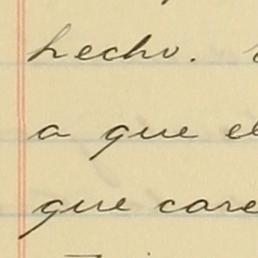 hecho.
a que el
que care